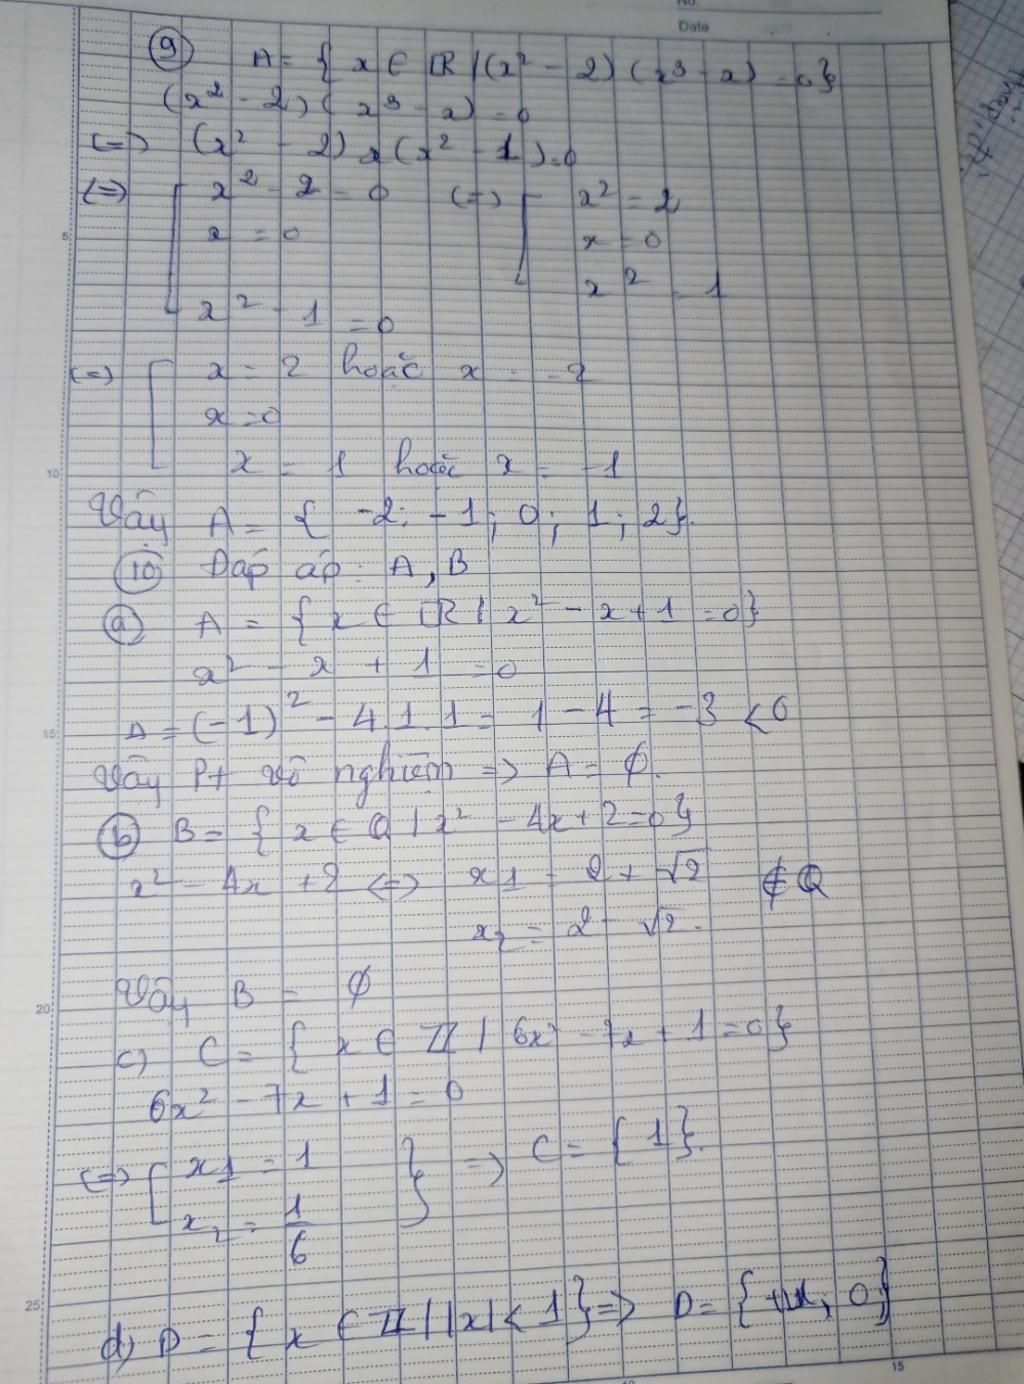 No.
Date
⑨ A = { x ∈ ℝ | (x² - 2) (x³ - x) = 0}
(x² - 2) (x³ - x) = 0
(=) (x² - 2) x (x² - 1) = 0
(=) [ x² - 2 = 0 (=) [ x² = 2
x = 0 x = 0
x² - 1 = 0 x² = 1
(=) [ x = 2 hoặc x = -2
x = 0
x = 1 hoặc x = -1
Vậy A = { -2; -1; 0; 1; 2}.
⑩ Đáp áp: A, B
ⓐ A = { x ∈ ℝ | x² - x + 1 = 0}
x² - x + 1 = 0
Δ = (-1)² - 4.1.1 = 1 - 4 = -3 < 0
Vậy Pt vô nghiệm => A = ∅.
ⓑ B = { x ∈ Q | x² - 4x + 2 = 0}
x² - 4x + 2 (=) x1 = 2 + √2 ∉ Q
x2 = 2 - √2.
Vậy B = ∅
c) C = { x ∈ ℤ | 6x² - 7x + 1 = 0}
6x² - 7x + 1 = 0
(=) [ x1 = 1 } => C = { 1}.
x2 = 1/6
d) D = { x ∈ ℤ | |x| < 1} => D = { 0}
5
10
15
20
25
15